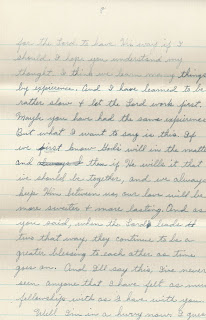 for the Lord to have His way if I
should. I hope you understand my
thought. I think we learn many things
by experience. And I have learned to be
rather slow & let the Lord work first.
Maybe you have had the same experience.
But what I want to say is this. If
we first know God's will in the matter
and then if He wills it that
we should be together, and we always
keep Him between us our love will be
more sweeter & more lasting. And as
you said, when the Lord leads
two that way they continue to be a
greater blessing to each other as time
goes on. And I'll say this, I've never
seen anyone that I have felt as much
fellowship with as I have with you.
Well I'm in a hurry now. I